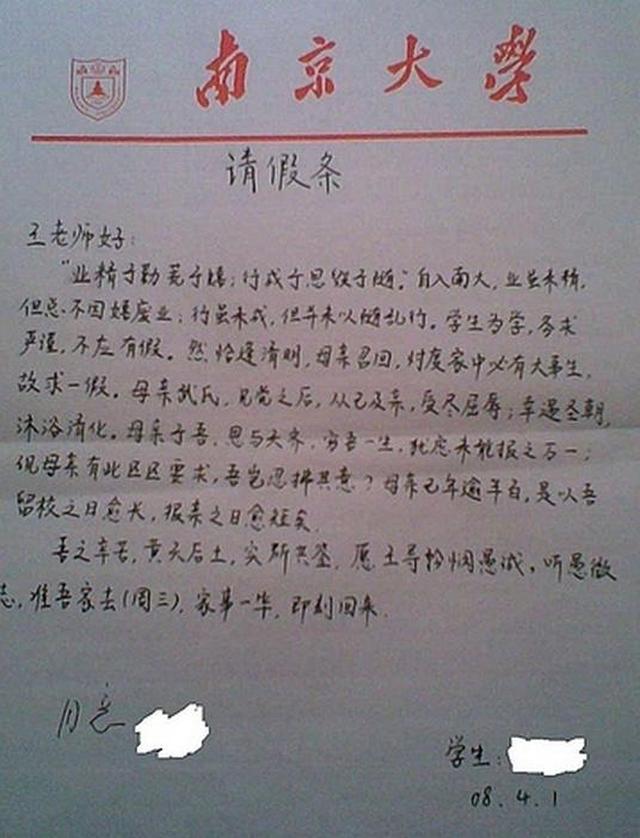 南京大學
请假条
王老师好：
“业精于勤荒于嬉；行成于思毁于随。”自入南大，业虽未精，
但总不因嬉废业；行虽未成，但并未以随乱行。学生为学，务求
严谨，不应有假。然恰逢清明，母亲召回，忖度家中必有大事生，
故求一假。母亲武氏，见党之后，从己及亲，受尽屈辱；幸遇圣朝，
沐浴清化。母亲于吾，恩与天齐，穷吾一生，犹恐未能报之万一；
现母亲有此区区要求，吾岂忍拂其意？母亲已年逾半百，是以吾
留校之日愈长，报亲之日愈短矣。
吾之辛苦，黄天后土，实所共鉴，愿王导矜悯愚诚，听愚微
志，准吾家去(周三)，家事一毕，即刻回来。
同意
学生：
08.4.1